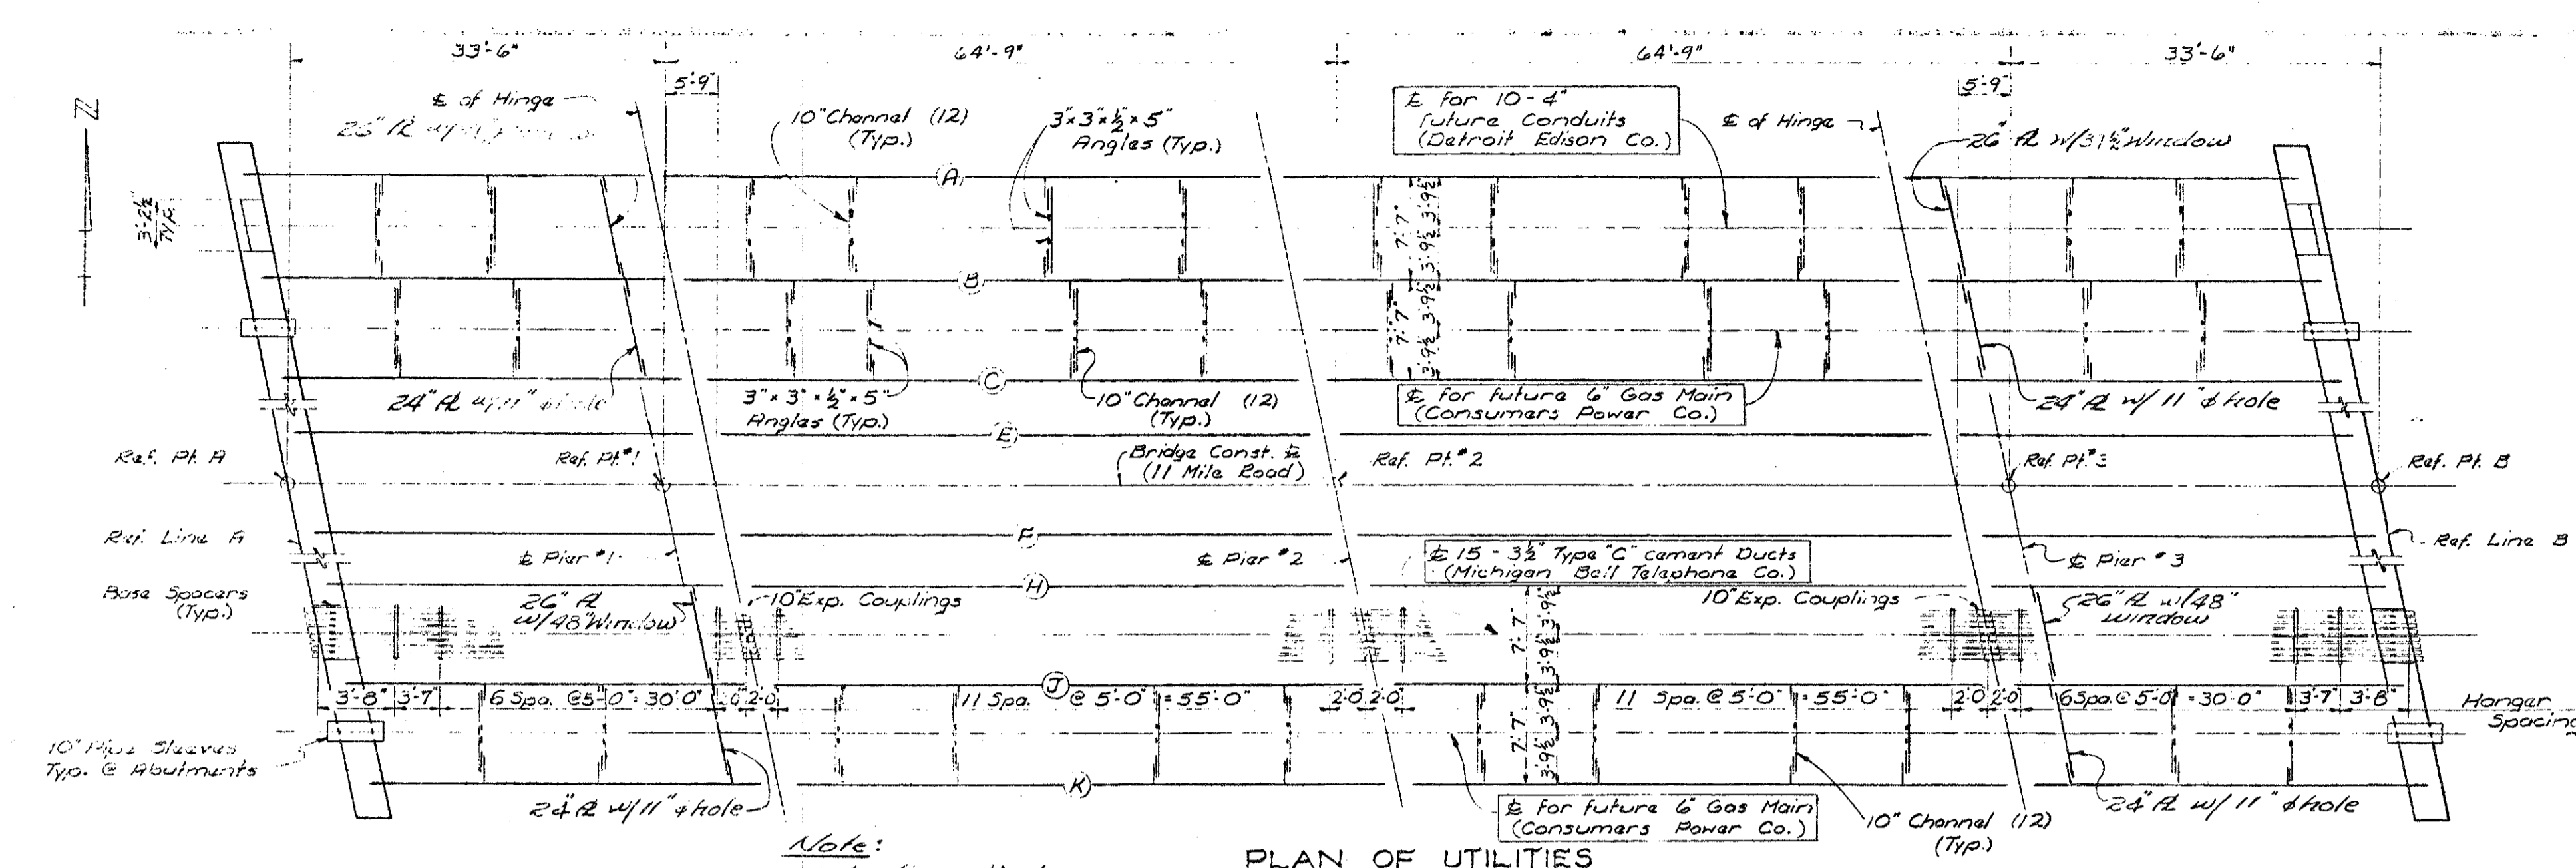 33'-6"
64'-9"
64'-9"
33'-6"
5'-9"
5'-9"
N
℄ of Hinge
26" ℞
10" Channel (12)
(Typ.)
3"x3"x½"x5"
Angles (Typ.)
℄ for 10-4"
future Conduits
(Detroit Edison Co.)
℄ of Hinge
26" ℞ w/31½" Window
A
3'-2½"
TYP.
7'-7"
3'-9½"
3'-9½"
B
7'-7"
3'-9½"
3'-9½"
C
24" ℞ w/11" ϕ hole
3"x3"x½"x5"
Angles (Typ.)
10" Channel (12)
(Typ.)
℄ for future 6" Gas Main
(Consumers Power Co.)
24" ℞ w/ 11" ϕ hole
E
Ref. Pt. A
Ref. Pt. #1
Bridge Const. ℄
(11 Mile Road)
Ref. Pt. #2
Ref. Pt. #3
Ref. Pt. B
Ref. Line A
F
℄ Pier #1
℄ Pier #2
℄ 15 - 3½" Type "C" cement Ducts
(Michigan Bell Telephone Co.)
℄ Pier #3
Ref. Line B
H
Base Spacers
(Typ.)
26" ℞
w/48" Window
10" Exp. Couplings
10" Exp. Couplings
26" ℞ w/48"
Window
7'-7"
3'-9½"
3'-9½"
J
3'-8"
3'-7"
6 Spa. @ 5'-0" = 30'-0"
2'-0"
2'-0"
11 Spa. @ 5'-0" = 55'-0"
2'-0"
2'-0"
11 Spa. @ 5'-0" = 55'-0"
2'-0"
2'-0"
6 Spa. @ 5'-0" = 30'-0"
3'-7"
3'-8"
Hanger
Spacing
7'-7"
3'-9½"
3'-9½"
10" Pipe Sleeves
Typ. @ Abutments
K
24" ℞ w/11" ϕ hole
℄ for future 6" Gas Main
(Consumers Power Co.)
10" Channel (12)
(Typ.)
24" ℞ w/ 11" ϕ hole
Note:
PLAN OF UTILITIES